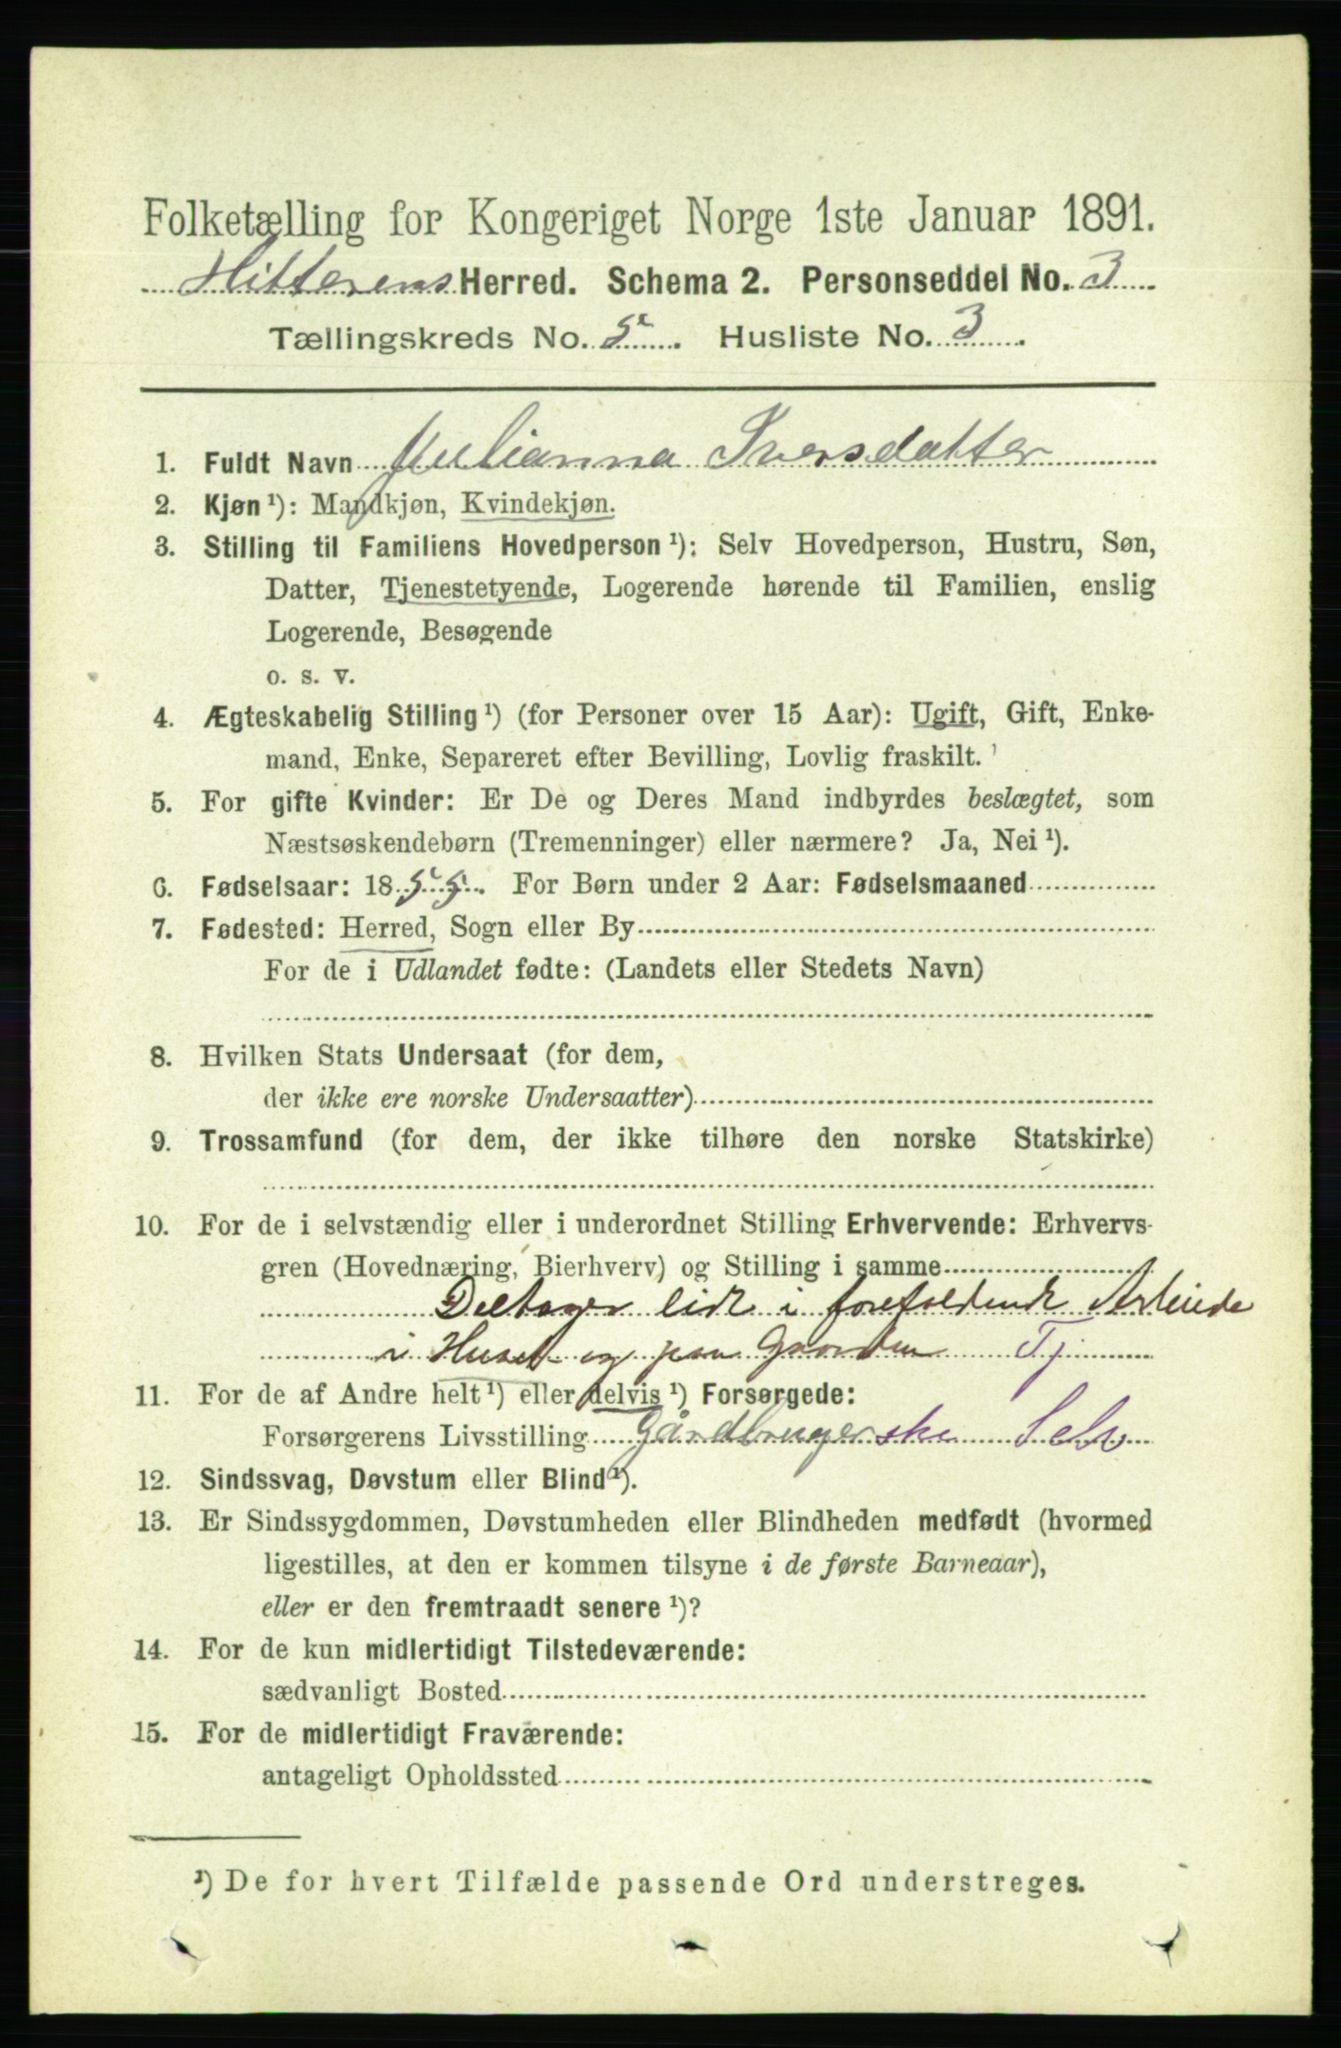 Folketælling for Kongeriget Norge 1ste Januar 1891.
Hitterens Herred. Schema 2. Personseddel No. 3
Tællingskreds No. 5. Husliste No. 3
1. Fuldt Navn Julianna Iversdatter
2. Kjøn ¹): Mandkjøn, Kvindekjøn.
3. Stilling til Familiens Hovedperson ¹): Selv Hovedperson, Hustru, Søn,
Datter, Tjenestetyende, Logerende hørende til Familien, enslig
Logerende, Besøgende
o. s. v.
4. Ægteskabelig Stilling ¹) (for Personer over 15 Aar): Ugift, Gift, Enke-
mand, Enke, Separeret efter Bevilling, Lovlig fraskilt.
5. For gifte Kvinder: Er De og Deres Mand indbyrdes beslægtet, som
Næstsøskendebørn (Tremenninger) eller nærmere? Ja, Nei ¹).
6. Fødselsaar: 1855. For Børn under 2 Aar: Fødselsmaaned
7. Fødested: Herred, Sogn eller By
For de i Udlandet fødte: (Landets eller Stedets Navn)
8. Hvilken Stats Undersaat (for dem,
der ikke ere norske Undersaatter)
9. Trossamfund (for dem, der ikke tilhøre den norske Statskirke)
10. For de i selvstændig eller i underordnet Stilling Erhvervende: Erhvervs-
gren (Hovednæring, Bierhverv) og Stilling i samme
Deltager lidt i forefaldende Arbeide
i Huset og paa Gaarden Tj
11. For de af Andre helt ¹) eller delvis ¹) Forsørgede:
Forsørgerens Livsstilling Gårdbrugerske Selv
12. Sindssvag, Døvstum eller Blind ¹).
13. Er Sindssygdommen, Døvstumheden eller Blindheden medfødt (hvormed
ligestilles, at den er kommen tilsyne i de første Barneaar),
eller er den fremtraadt senere ¹)?
14. For de kun midlertidigt Tilstedeværende:
sædvanligt Bosted
15. For de midlertidigt Fraværende:
antageligt Opholdssted
¹) De for hvert Tilfælde passende Ord understreges.